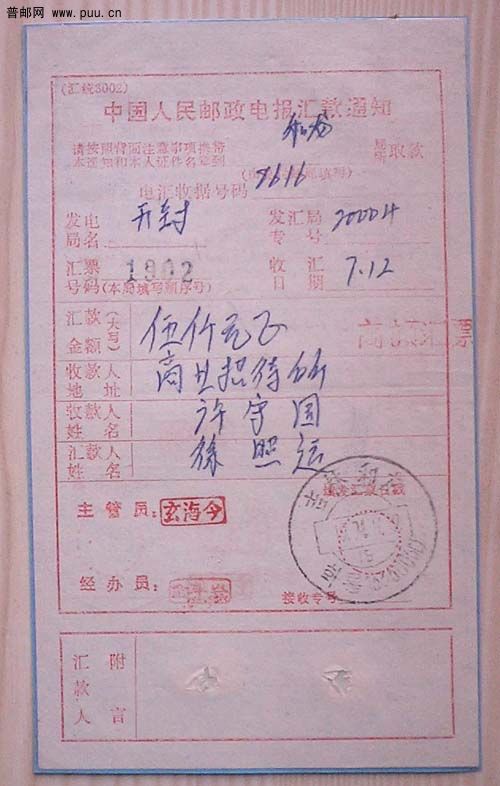 普邮网 www.puu.cn
(汇统3002)
中国人民邮政电报汇款通知
和龙
请按照背面注意事项携带
本通知和本人证件名章到
局所取款
电汇收据号码 8616
发电局名 开封
发汇局专号 20004
汇票号码 1902 (本局填写顺序号)
收汇日期 7.12
汇款金额(大写) 伍仟元正
商款汇票
收款人地址 商业招待所
收款人姓名 许守国
汇款人姓名 徐照运
主管员: 玄海今
经办员:
接收专号
汇款人附言